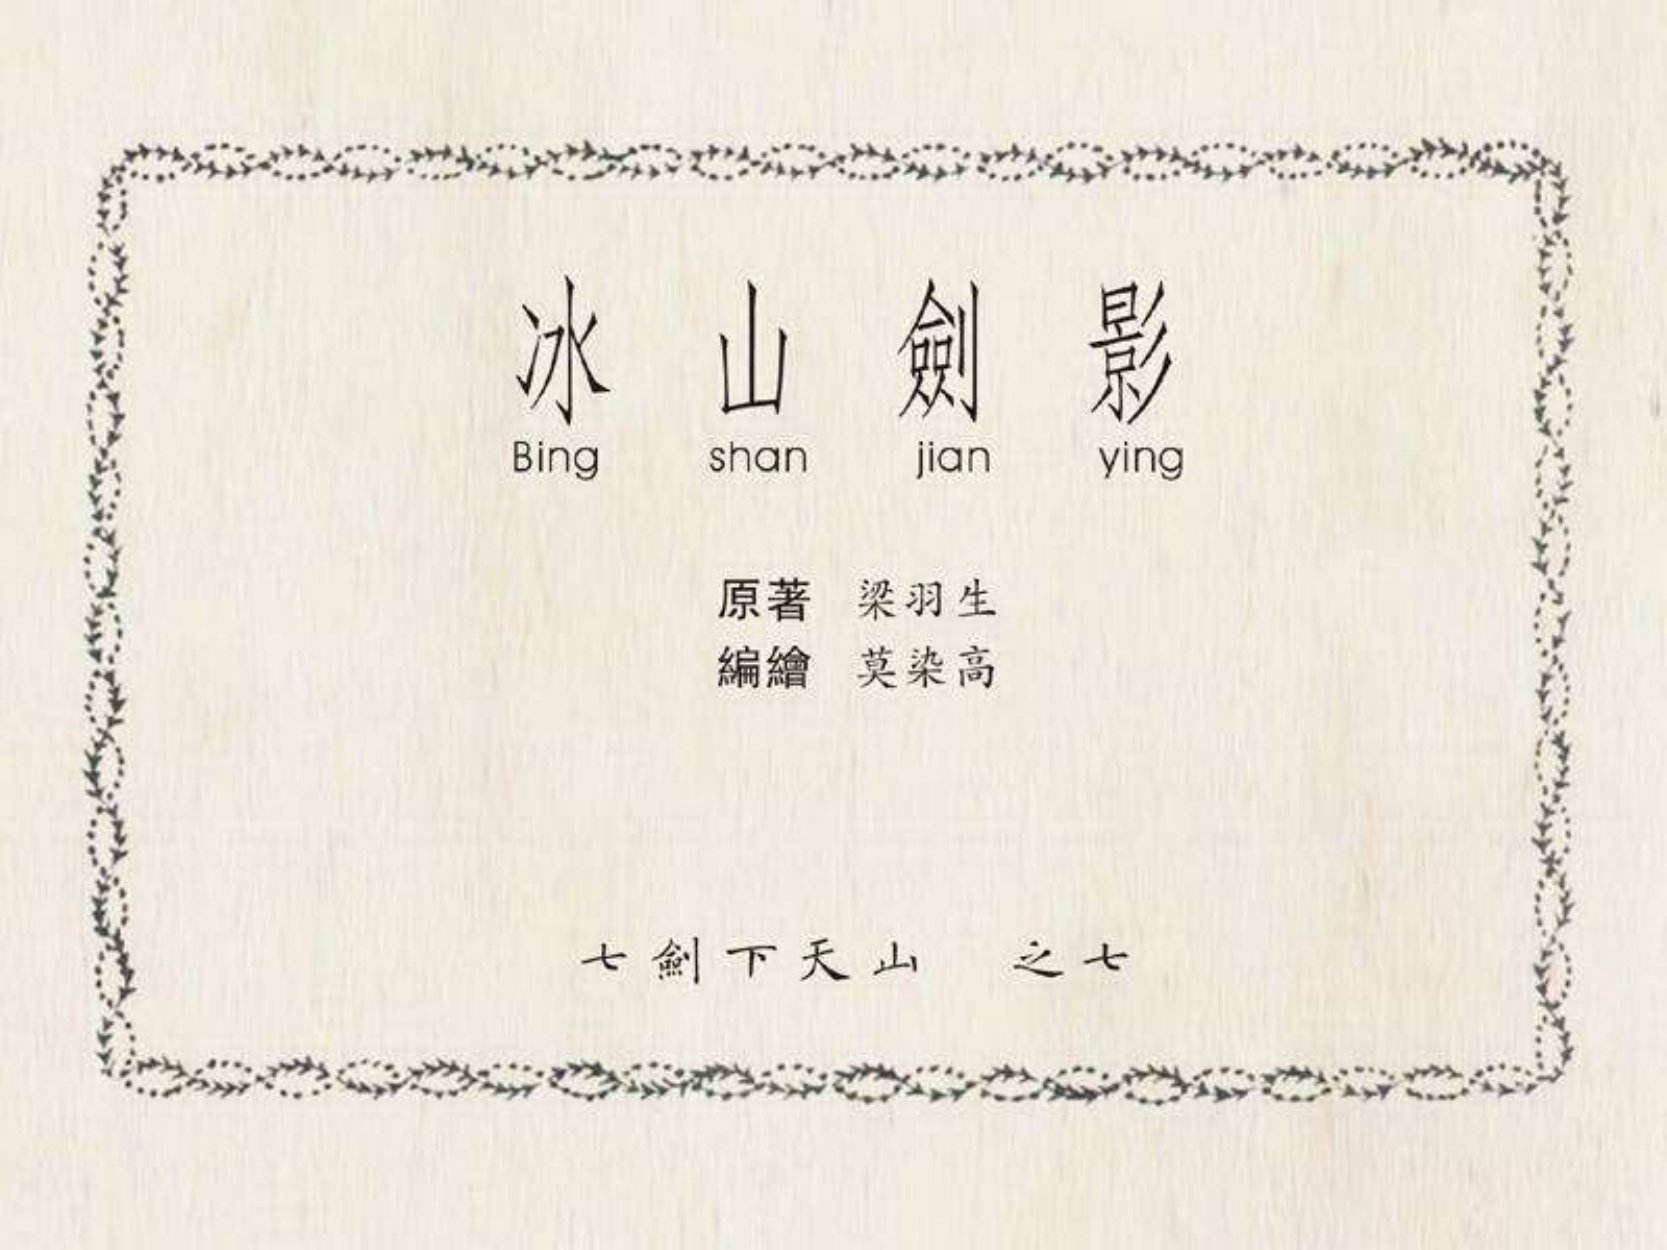 冰山劍影
Bing shan jian ying
原著 梁羽生
編繪 莫染高
七劍下天山 之七